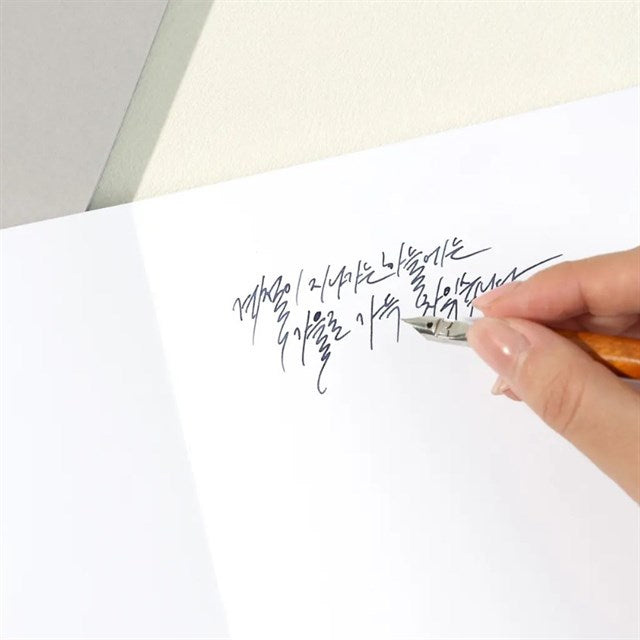 계절이 지나가는 하늘에는
가을로 가득 차있습니다